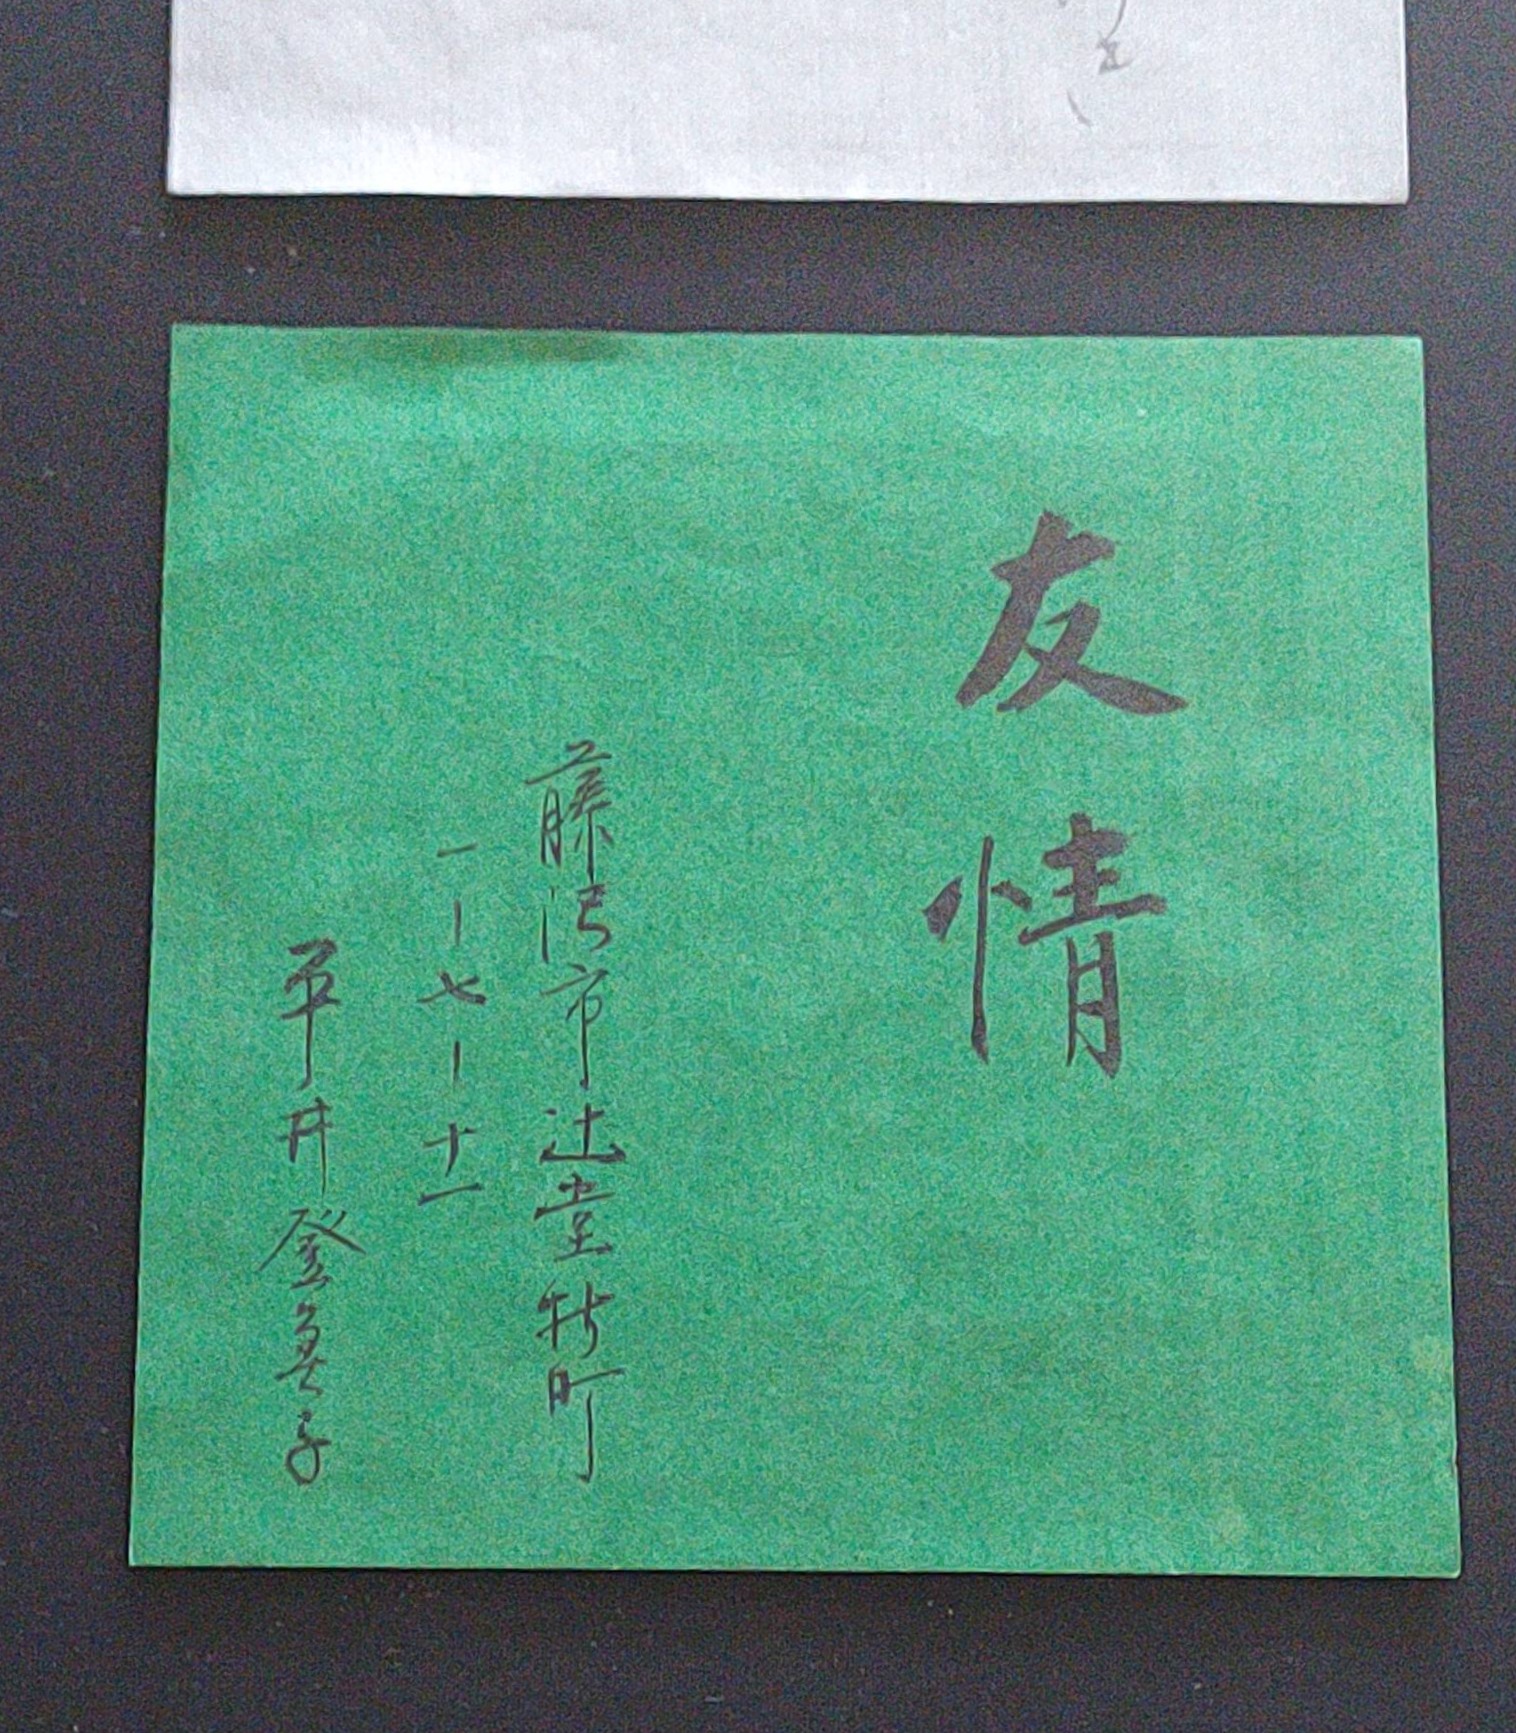 友情
藤沢市辻堂新町
一-七-十一
平井登美子